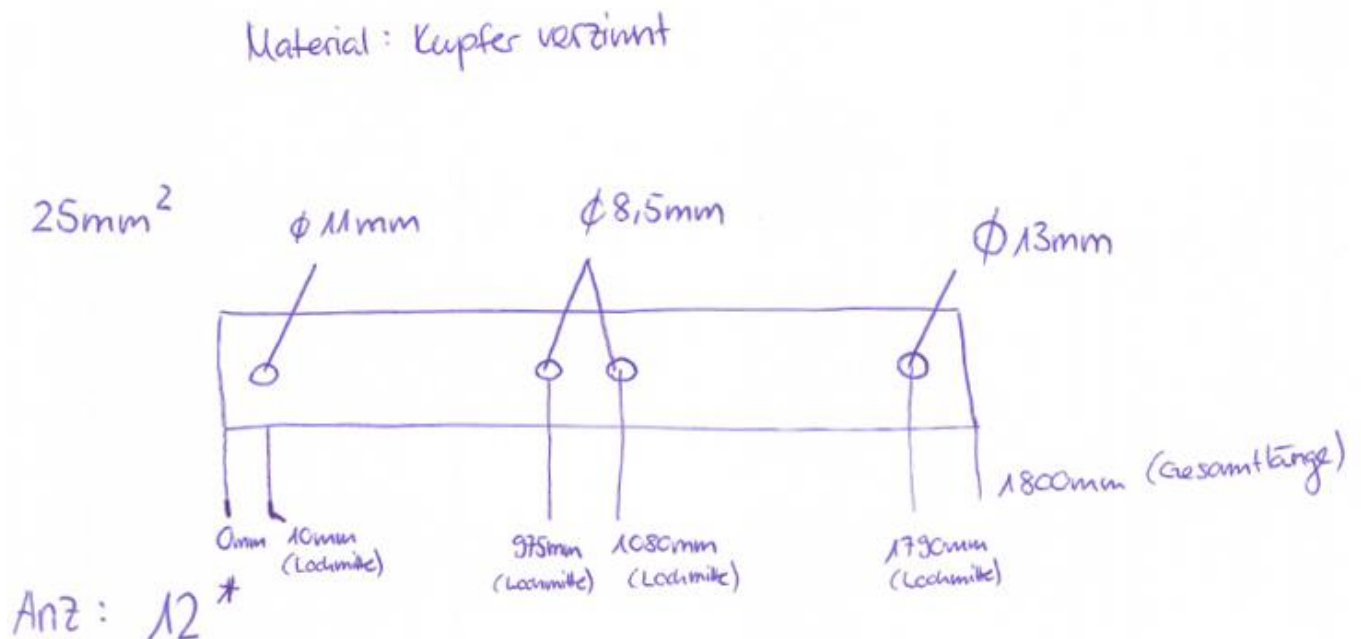 Material: Kupfer verzinnt
25mm²
ϕ 11mm
ϕ 8,5mm
ϕ 13mm
1800mm (Gesamtlänge)
0mm
10mm
(Lochmitte)
975mm
(Lochmitte)
1080mm
(Lochmitte)
1790mm
(Lochmitte)
Anz: 12*